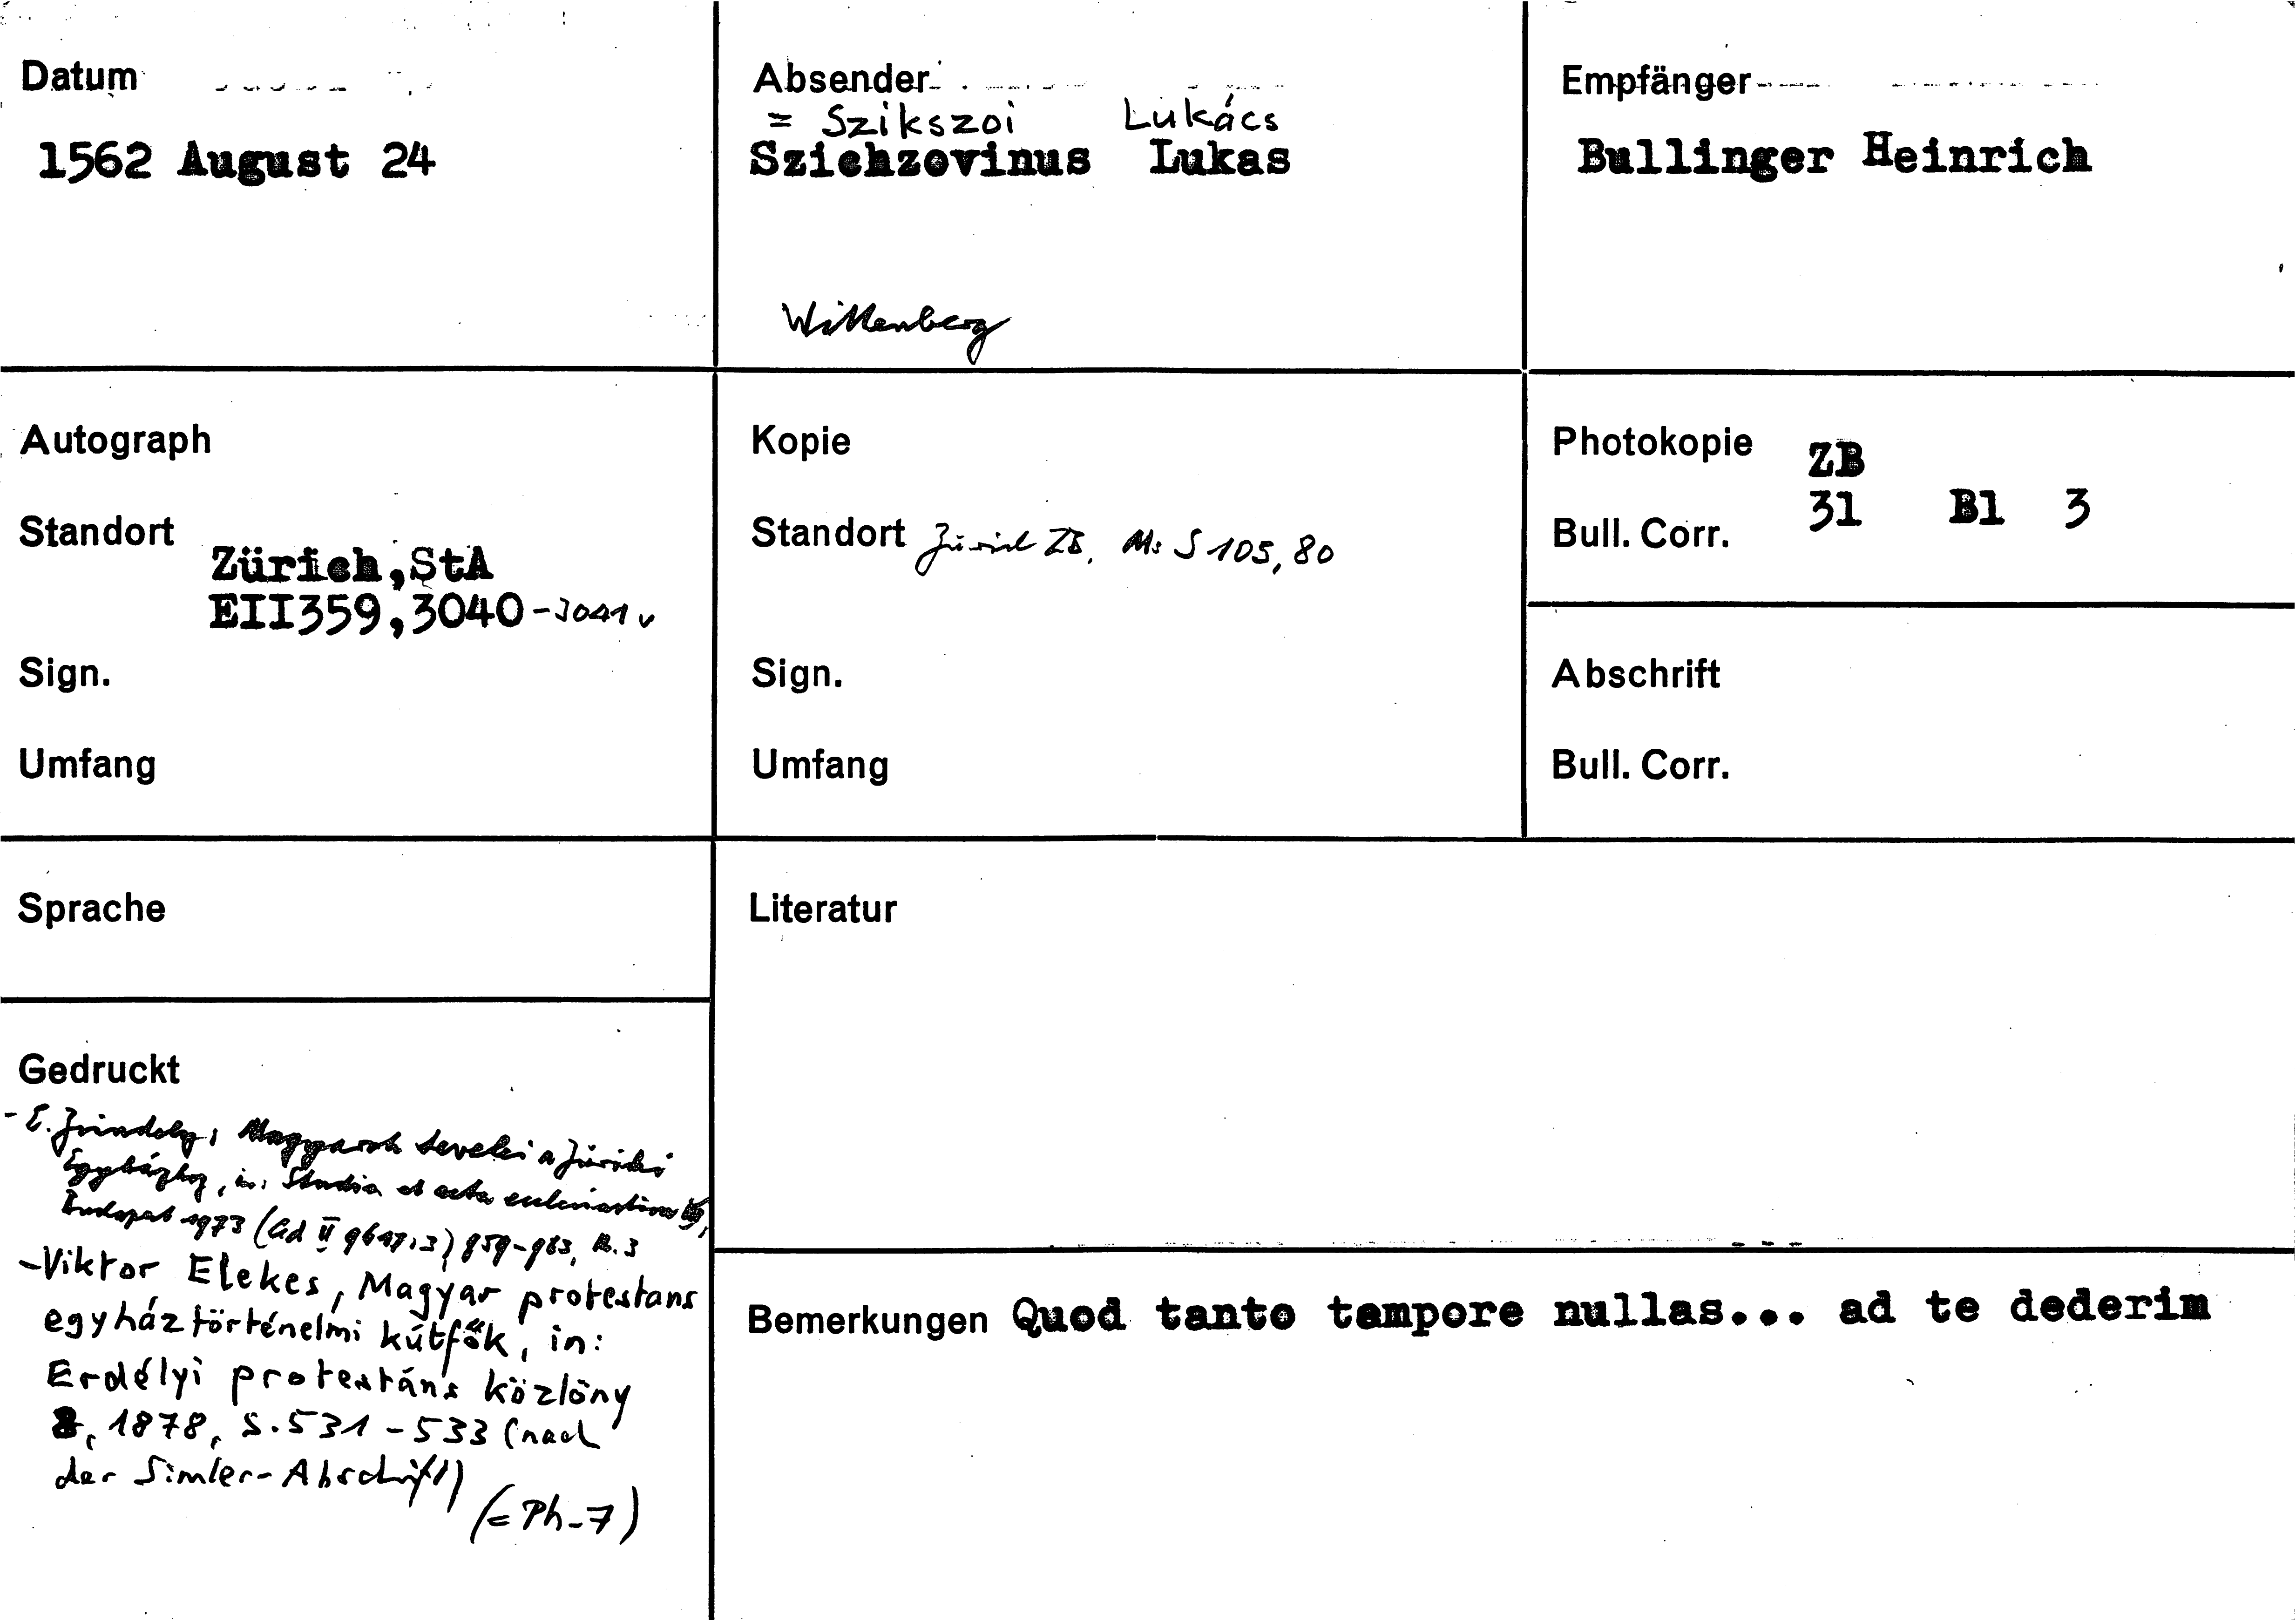 Datum
1562 August 24
Absender
= Szikszoi Lukács
Sziehzovinus Lukas
Wittenberg
Empfänger
Bullinger Heinrich
Autograph
Standort
Zürich, StA
EII359,3040-3041v
Sign.
Umfang
Kopie
Standort Zürich ZB, Ms S 105, 80
Sign.
Umfang
Photokopie ZB
Bull. Corr. 31 Bl 3
Abschrift
Bull. Corr.
Sprache
Gedruckt
- E. Zsindely, Magyarok levelei a zürichi
Egyházhoz, in: Studia et acta ecclesiastica
Budapest 1973 (Ad II 9617:3) 959-963,
-Viktor Elekes, Magyar protestans
egyháztörténelmi kútfők, in:
Erdélyi protestáns közlöny
8, 1878, S. 531-533 (nach
der Simler-Abschrift)
(= Ph-7)
Literatur
Bemerkungen Quod tanto tempore nullas... ad te dederim